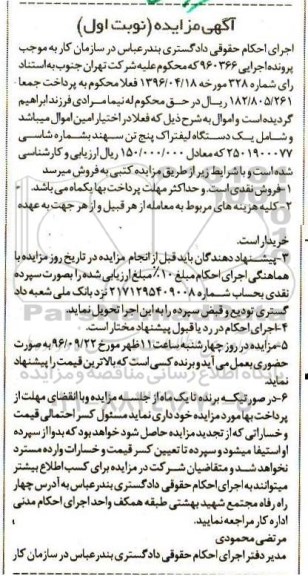 آگهی مزایده (نوبت اول)
اجرای احکام حقوقی دادگستری بندرعباس در سازمان کار به موجب
پرونده اجرایی ۹۶۰۳۶۶ که محکوم علیه شرکت تهران جنوب به استناد
رای شماره ۳۲۸ مورخه ۱۳۹۶/۰۴/۱۸ فعلا محکوم به پرداخت جمعا
۱۸۲/۸۰۵/۲۶۱ ریال در حق محکوم له نیما مرادی فرزند ابراهیم
گردیده است و اموال به شرح ذیل که فعلا در اختیار امین اموال میباشد
و شامل یک دستگاه لیفتراک پنج تن سهند بشماره شاسی
۲۵۰۱۹۰۰۰۷۷ که معادل ۱۵۰/۰۰۰/۰۰۰ ریال ارزیابی و کارشناسی
شده است و با شرایط زیر از طریق مزایده کتبی به فروش میرسد
۱-فروش نقدی است. و حداکثر مهلت پرداخت بها یکماه می باشد.
۲-کلیه هزینه های مربوط به معامله از هر قبیل و از هر جهت به عهده
خریدار است.
۳-پیشنهاد دهندگان باید قبل از انجام مزایده در تاریخ روز مزایده با
هماهنگی اجرای احکام مبلغ ۱۰٪ مبلغ ارزیابی شده را بصورت سپرده
نقدی بحساب شماره ۲۱۷۱۲۹۵۴۰۹۰۰۸ نزد بانک ملی شعبه داد
گستری تودیع و قبض سپرده را به این اجرا تحویل نماید.
۴-اجرای احکام در رد یا قبول پیشنهاد مختار است.
۵-مزایده در روز چهارشنبه ساعت ۱۱ظهر مورخ ۹۶/۰۹/۲۲ به صورت
حضوری بعمل می آید و برنده کسی است که بالاترین قیمت را پیشنهاد
نماید.
۶-در صورتیکه برنده تا یک ماه از جلسه مزایده و با انقضای مهلت از
پرداخت بها مورد مزایده خودداری نماید مسئول کسر احتمالی قیمت
و خساراتی که از تجدید مزایده حاصل شود خواهد بود که بدوا از سپرده
او استیفا میشود و سپرده تا تعیین کسر قیمت و خسارات وارده مسترد
نخواهد شد و متقاضیان شرکت در مزایده برای کسب اطلاع بیشتر
میتوانند به اجرای احکام حقوقی دادگستری بندرعباس به آدرس چهار
راه رفاه مجتمع شهید بهشتی طبقه همکف واحد اجرای احکام مدنی
اداره کار مراجعه نمایید.
مرتضی محمودی
مدیر دفتر اجرای احکام حقوقی دادگستری بندرعباس در سازمان کار